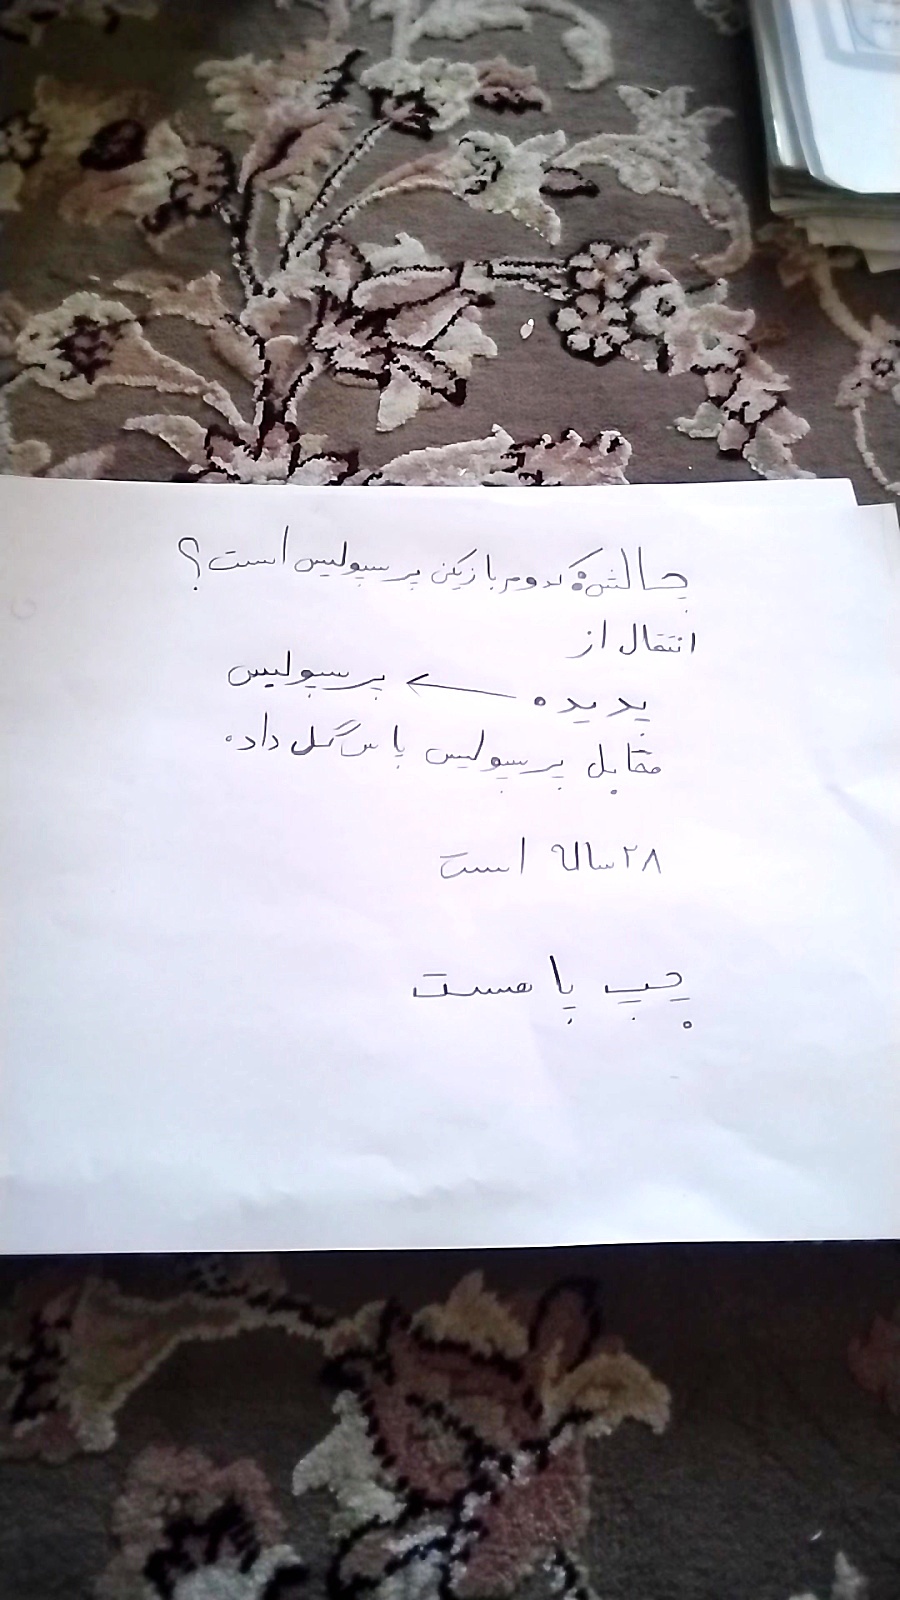 چالش: کدوم بازیکن پرسپولیس است؟
انتقال از
پدیده ← پرسپولیس
مقابل پرسپولیس پاس گل داد.
۲۸ ساله است
چپ پا هست